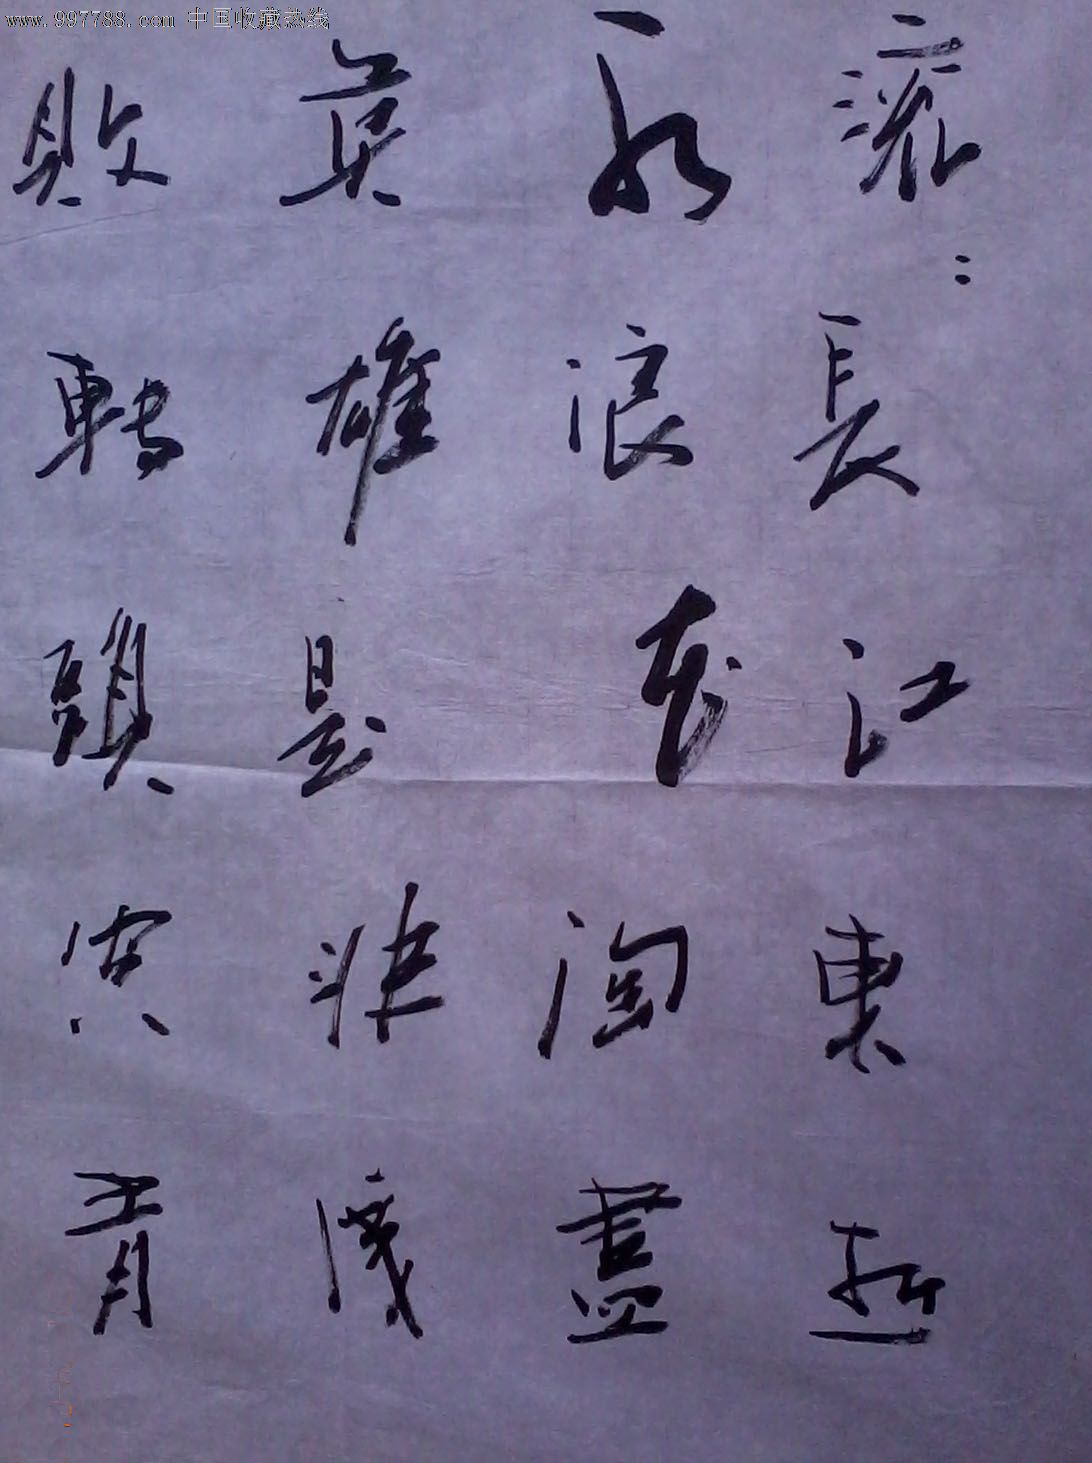 www.997788.com 中国收藏热线
滚〻長江東逝
水浪花淘盡
英雄是非成
敗轉頭空青